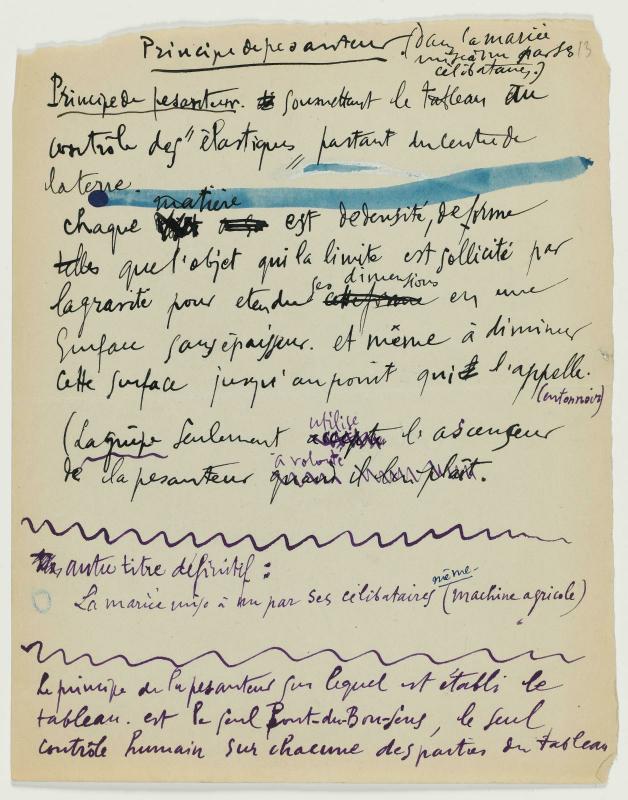 Principe de pesanteur (Dans la mariée
mise à nu par ses 13
célibataires.)
Principe de pesanteur. Soumettant le tableau au
contrôle des "élastiques" partant du centre de
la terre.
matière
chaque est de densité, de forme
telles que l'objet qui la limite est sollicité par
ses dimensions
la gravité pour etendre cette forme en une
surface sans épaisseur. et même à diminuer
cette surface jusqu'au point qui l'appelle.
(entonnoirs)
utilise
(La guêpe seulement accepte l'ascenseur
à volonté
de la pesanteur quand il lui plait.
autre titre définitif :
même
La mariée mise à nu par ses célibataires (machine agricole)
Le principe de la pesanteur sur lequel est établi le
tableau. est le seul Pont-du-Bon-Sens, le seul
contrôle humain sur chacune des parties du tableau